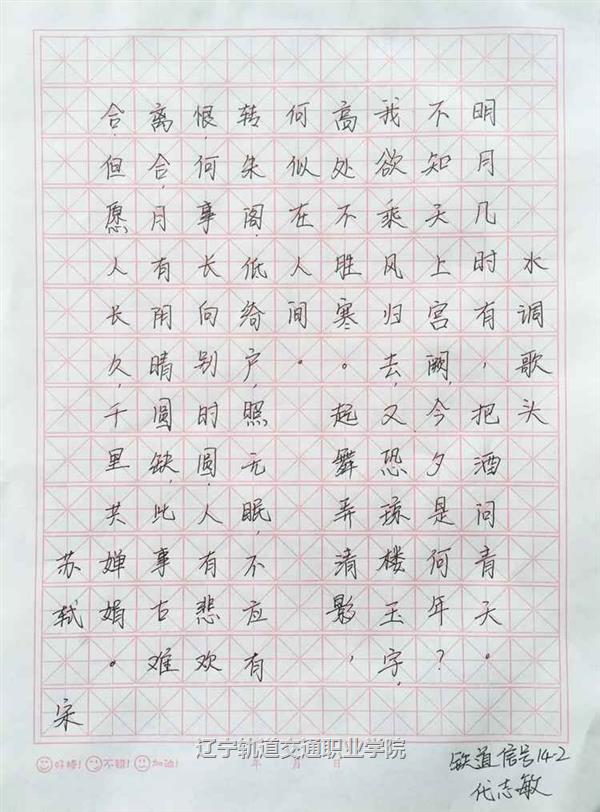 水调歌头
明月几时有,把酒问青天。
不知天上宫阙,今夕是何年?
我欲乘风归去,又恐琼楼玉字,
高处不胜寒。起舞弄清影,
何似在人间。
转朱阁,低绮户,照无眠,不应有
恨,何事长向别时圆,人有悲欢
离合,月有阴晴圆缺,此事古难
合,但愿人长久,千里共婵娟。
苏轼 宋
好棒! 不错! 加油! 年 月 日
辽宁轨道交通职业学院
铁道信号14-2
代志敏